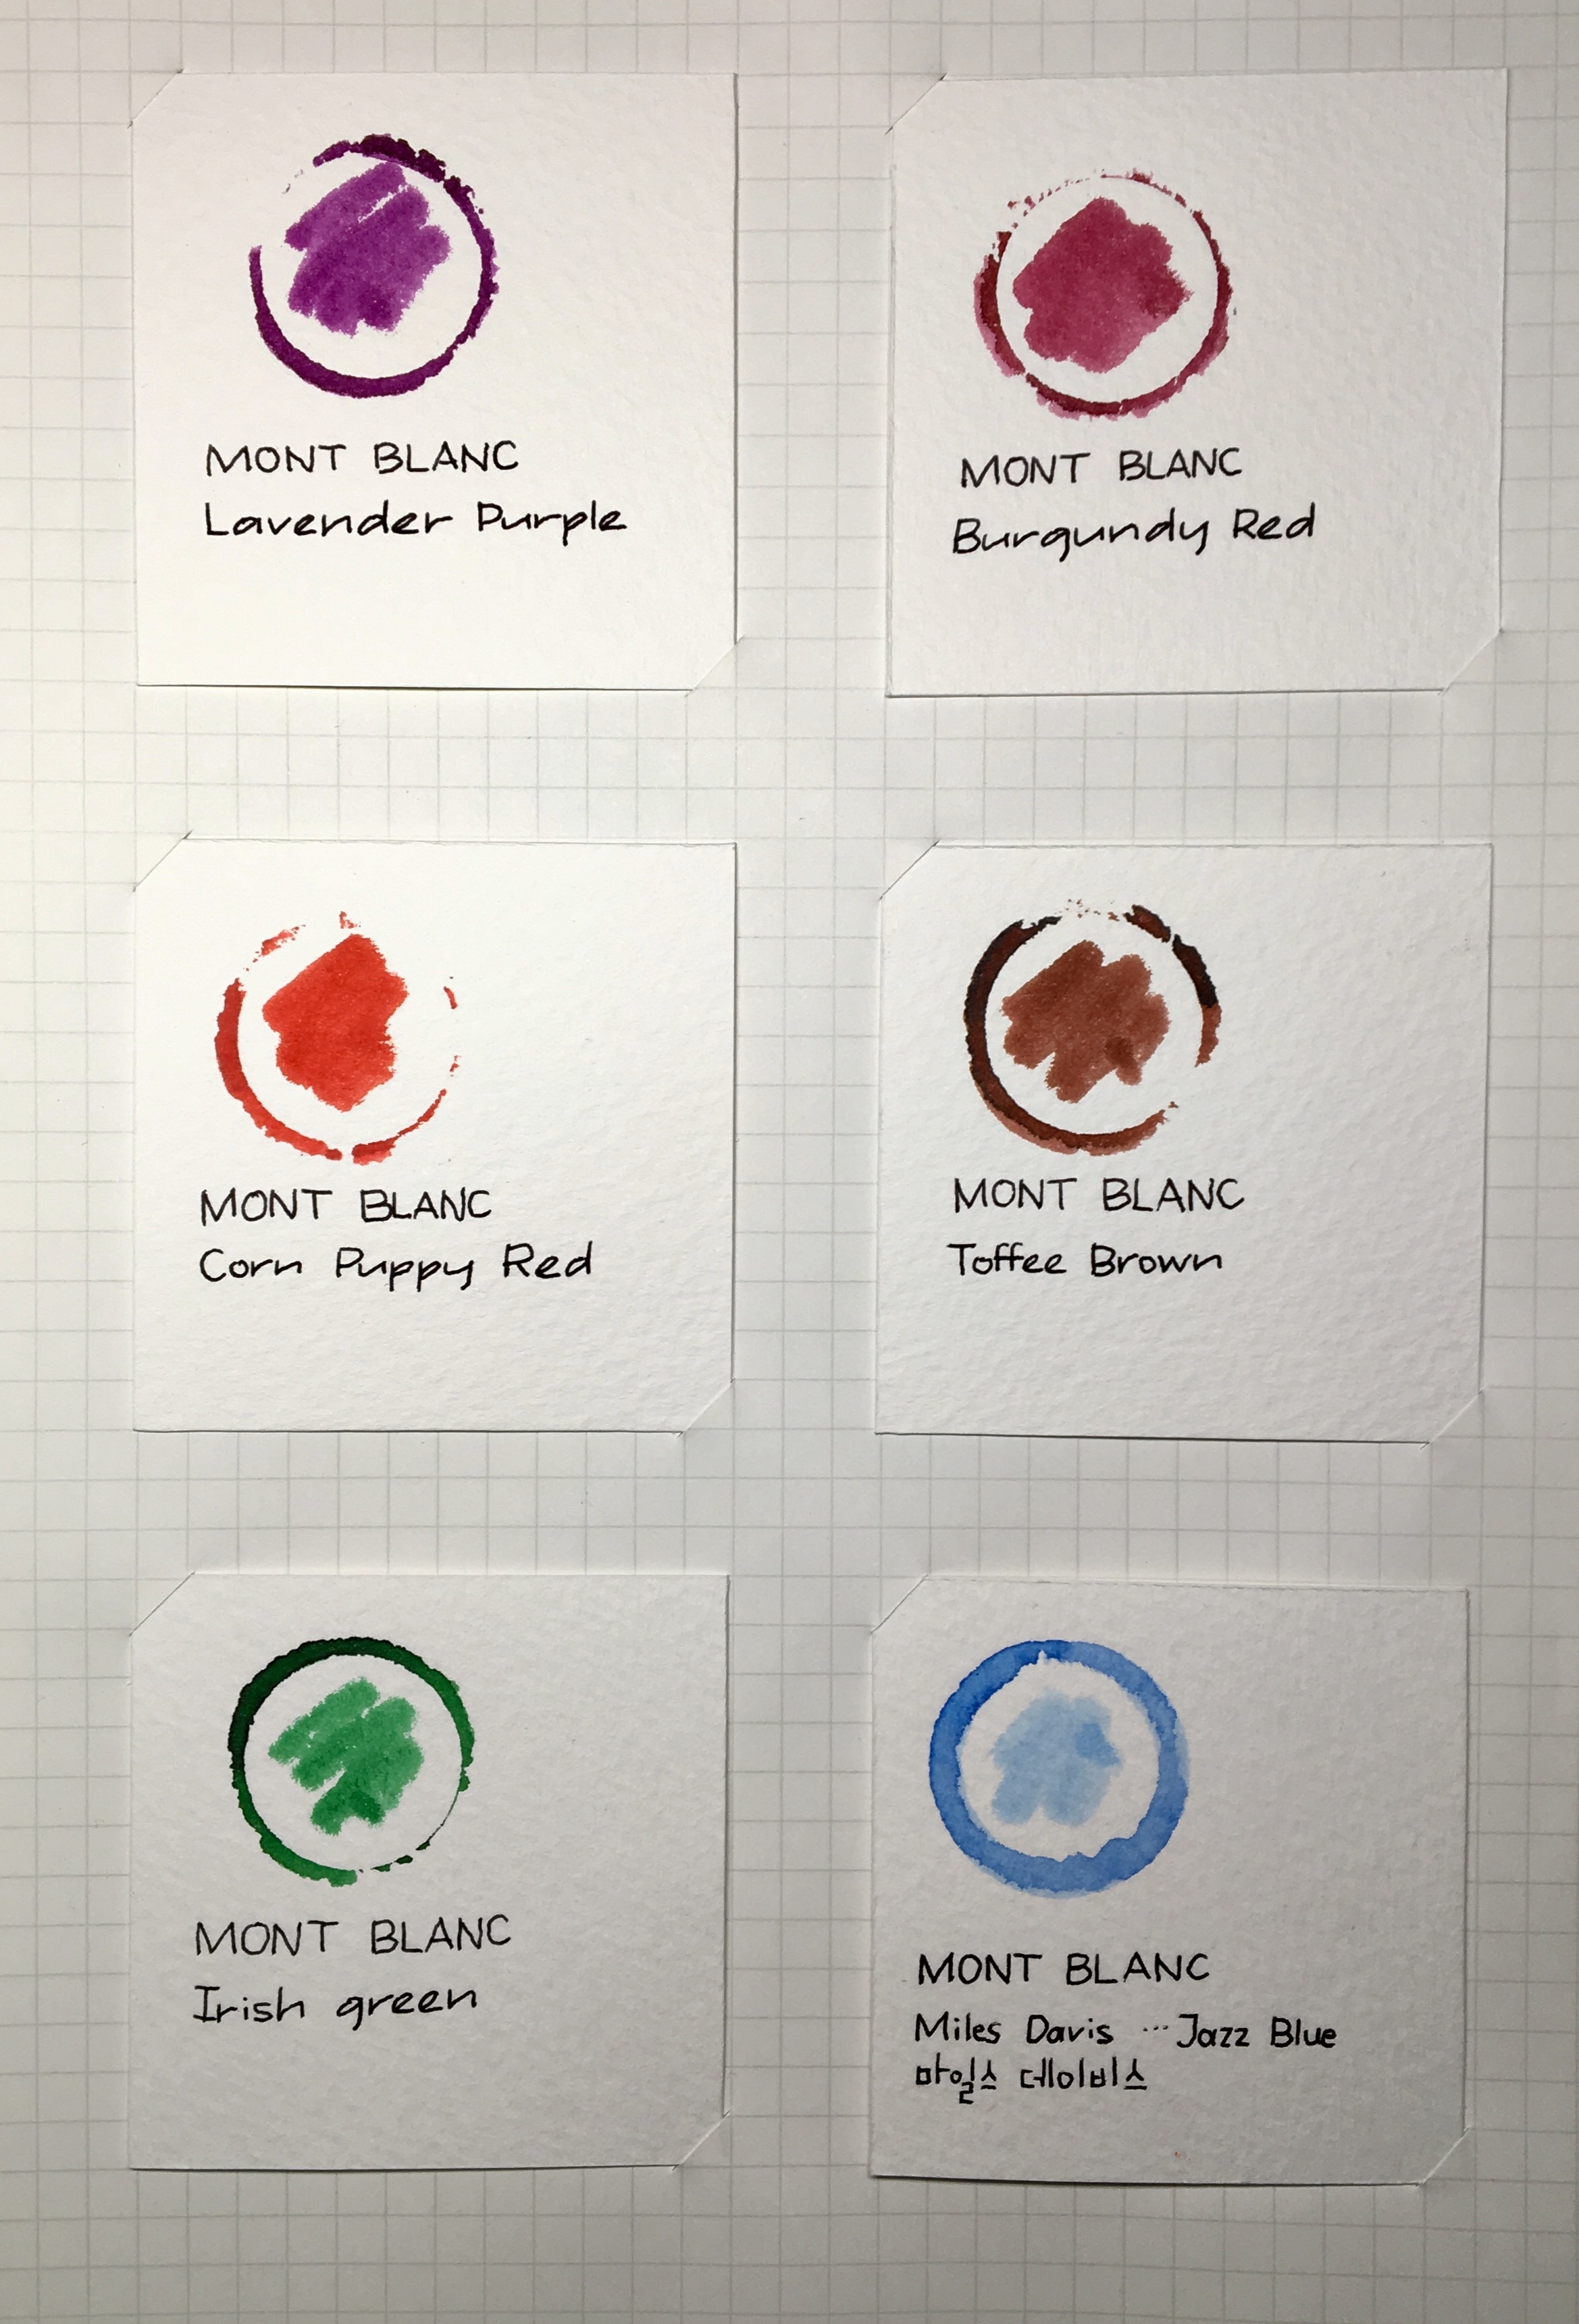 MONT BLANC
Lavender Purple
MONT BLANC
Burgundy Red
MONT BLANC
Corn Puppy Red
MONT BLANC
Toffee Brown
MONT BLANC
Irish green
MONT BLANC
Miles Davis ... Jazz Blue
마일스 데이비스